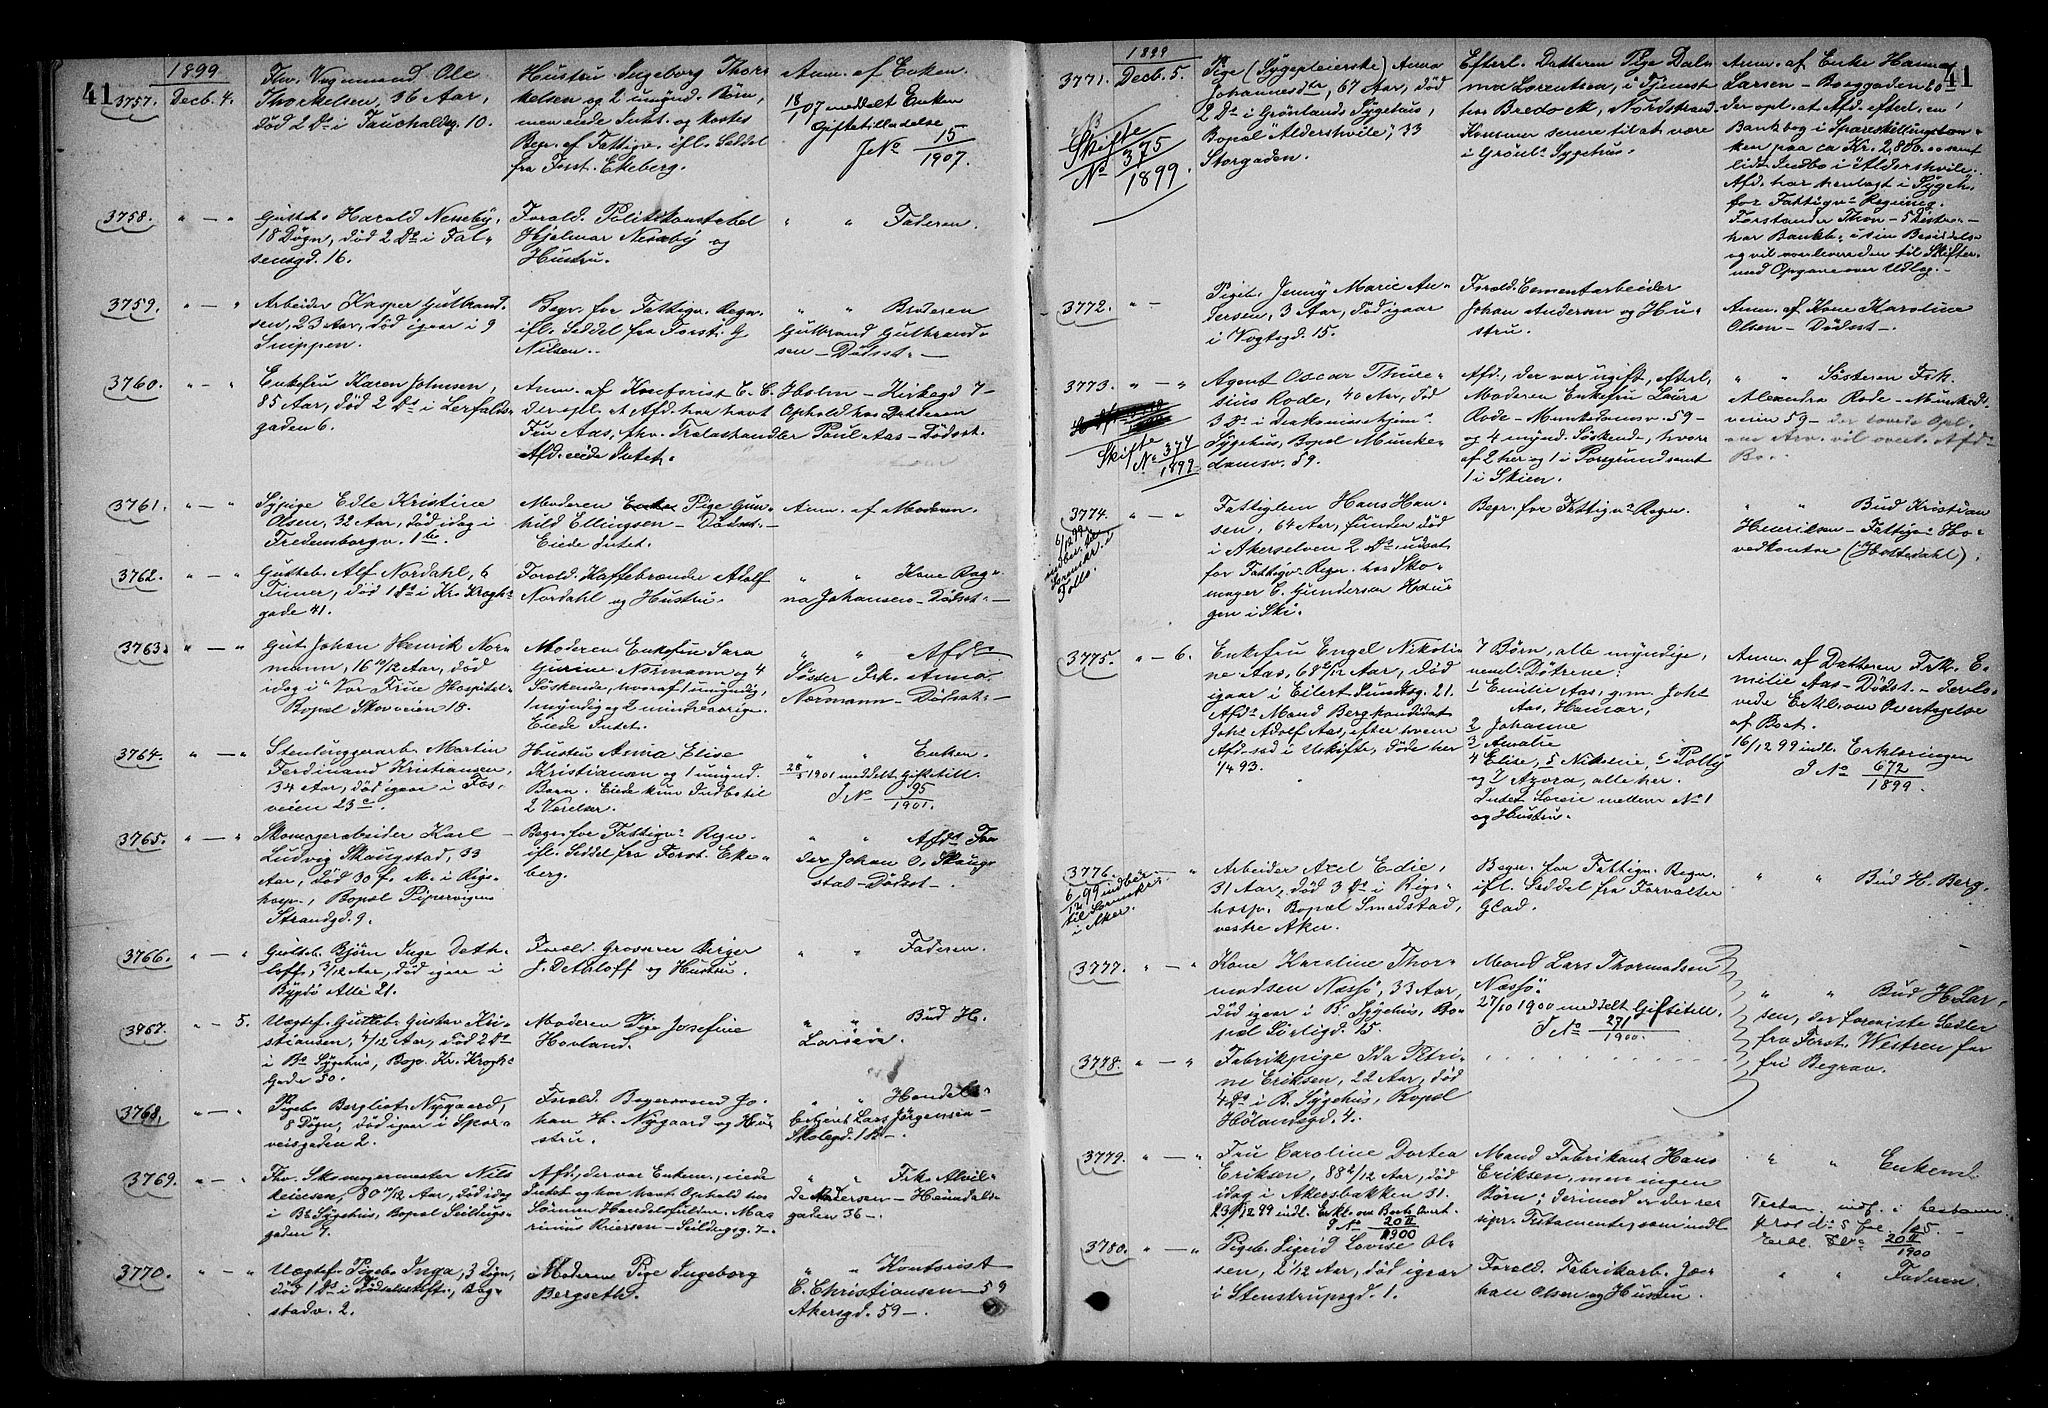 41
1899
3757. Decb. 4.
Fhv. Vognmand Ole
Thorkelsen, 36 Aar,
død 2 Ds i Tauchaldsg. 10.
Hustru Ingeborg Thor-
kelsen og 2 umynd. Børn,
men eiede Intet og kostes
Begr. af Fattigv. ifl. Seddel
fra Forst. Ekeberg.
Anm. af Enken.
18/1 07 meddelt Enken
Giftetilladelse
J No 15/1907.
3758. " — "
Gutteb. Harald Nesseby,
18 Døgn, død 2 Ds i Fal-
sensgd. 16.
Foræld. Politikonstabel
Hjalmar Nesseby og
Hustru.
" " Faderen.
3759. " — "
Arbeider Kasper Gulbrand-
sen, 23 Aar, død igaar i 9
Snippen.
Begr. for Fattigv. Regn.
ifl. Seddel fra Forst. G
Nilsen.
" " Broderen
Gulbrand Gulbrand-
sen — Dødsst. —
3760. " — "
Enkefru Karen Johnsen,
85 Aar, død 2 Ds i Lerfalds-
gaden 6.
Anm. af Kontorist E. C. Holm — Kirkegd 7 —
der opl. at Afd. har havt Ophold hos Datteren
Fru Aas, fhv. Trælasthandler Paul Aas — Dødsst.
Afd. eiede Intet.
3761. " — "
Sypige Edle Kristine
Olsen, 32 Aar, død idag i
Fredensborgv. 1 b.
Moderen Enke Pige Gun-
hild Ellingsen — Dødsst. —
Eiede Intet.
Anm. af Moderen.
3762. " — "
Gutteb. Alf Nordahl, 6
Timer, død 1 Ds i Kr. Krogh-
gade 41.
Foræld. Kaffebrænder Adolf
Nordahl og Hustru.
" " Kone Rag-
na Johansen — Dødsst. —
3763. " — "
Gut Johan Henrik Nor-
mann, 16 10/12 Aar, død
idag i "Vor Frue Hospital",
Bopæl Skovveien 18.
Moderen Enkefru Sara
Gurine Normann og 4
Søskende, hvoraf 1 umyndig,
1 myndig og 2 mindreaarige.
Eiede Intet.
" " Afd.s
Søster Frk. Anna
Normann — Dødsst. —
3764. " — "
Stenhuggerarb. Martin
Ferdinand Kristiansen,
34 Aar, død igaar i Fos-
veien 23 c.
Hustru Anna Elise
Kristiansen og 1 umynd.
Barn. Eiede kun Indbo til
2 Værelser.
" " Enken.
28/5 1901 meddelt Giftetill.
J No 95/1901.
3765. " — "
Skomagerarbeider Karl
Ludvig Skaugstad, 33
Aar, død 30 f. M. i Rigs-
hosp., Bopæl Pipervigens
Strandgd. 9.
Begr. for Fattigv. Regn.
ifl. Seddel fra Forst. Eke-
berg.
" " Afd.s Fa-
der Johan O. Skaug-
stad — Dødsst. —.
3766. " — "
Gutteb. Bjørn Inge Deth-
loff, 3/12 Aar, død igaar i
Bygdø Allé 21.
Foræld. Grosserer Birger
J. Dethloff og Hustru.
" " Faderen.
3767. " — 5.
Uægtef. Gutteb. Gustav Kri-
stiansen, 4/12 Aar, død 2 Ds
i Bs Sygehus, Bop. Kr. Krogh-
gade 50.
Moderen Pige Josefine
Hovland.
" " Bud H.
Larsen.
3768. " — "
Pigeb. Bergliot Nygaard,
8 Døgn, død igaar i Spor-
veisgaden 2.
Foræld. Bogersvend Jo-
han H. Nygaard og Hu-
stru.
" " Handels-
betjent Lars Jørgensen —
Skolegd. 18 —.
3769. " — "
Fhv. Skomagermester Nils
Reiersen, 80 10/12 Aar, død idag
i Bs Sygehus, Bopæl Seildugs-
gaden 7.
Afd., der var Enkem., eiede
Intet og har havt Ophold hos
Sønnen Handelsfuldm. Ma-
rinius Reiersen — Seildugsg. 7 —
" " Frk. Alvil-
de Andersen — Heimdals-
gaden 36 —.
3770. " — "
Uægtef. Pigeb. Inga, 3 Døgn,
død 1 Ds i Fødselsstift., Bog-
stadv. 2.
Moderen Pige Ingeborg
Bergseth.
" " Kontorist
C. Christiansen — 59
Akersgd. 59 —.
41
1899
3771. Decb. 5.
Skifte
No 375/1899.
Pige (Sygepleierske) Anna
Johannesdtr, 67 Aar, død
2 Ds i Grønlands Sygehus,
Bopæl "Aldershvile", 33
Storgaden.
Efterl. Datteren Pige Dal-
ma Lorentzen, i Tjeneste
hos Bredock, Nordstrand.
Kommer senere til at være
i Grønl. Sygehus.
Anm. af Enke Hanna
Larsen — Borggaden 20
der opl. at Afd. efterl. en
Bankbog i Spareskillingsban-
ken paa ca Kr. 2,800.00 samt
lidt Indbo i "Aldershvile".
Afd. har henlagt i Sygeh.
for Fattigv. Regning.
Forstander Thon — 5 Distr. —
har Bankb. i sin Besiddelse
og vil overlevere den til Skifter.
med Opgave over Udlæg. —
3772. " —
Pigeb. Jenny Marie An-
dersen, 3 Aar, død igaar
i Vogtsgd. 15.
Foræld. Cementarbeider
Johan Andersen og Hu-
stru.
Anm. af Kone Karoline
Olsen — Dødsst. —.
3773. " — "
Skifte
No 374/1899
Agent Oscar Thure-
sius Rode, 40 Aar, død
3 Ds i Diakonissehjem.
Sygehus, Bopæl Munke-
damsv. 59.
Afd., der var ugift, efterl.
Moderen Enkefru Laura
Rode — Munkedamsv. 59 —
og 4 mynd. Søskende, hvor-
af 2 her og 1 i Porsgrund samt
1 i Skien.
" " Søsteren Frk.
Alexandra Rode — Munkeds-
veien 59 — der lovede Opl.
om Arv. vil overt. Afd.s
Bo.
3774. " — "
6/12 99
Fattiglem Hans Han-
sen, 64 Aar, funden død
i Akerselven 2 Ds, udsat
for Fattigv. Regn. hos Sko-
mager E. Gundersen Hau-
gen i Ski.
Begr. for Fattigv. Regn.
" " Bud Kristian
Henriksen — Fattigv. Ho-
vedkontor (Holtedahl).
3775. " — 6.
Enkefru Engel Nikoli-
ne Aas, 68 2/12 Aar, død
igaar i Eilert Sundtsg. 21.
Afd.s Mand Bergkandidat
Johs Adolf Aas, efter hvem
Afd. sad i Uskifte, døde her
1/4 93.
7 Børn, alle myndige,
neml. Døtrene:
1 Emilie Aas, g. m. Johs
Aas, Hamar,
2 Johanne
3 Amalie
4 Elise, 5 Nikoline, 6 Polly
og 7 Azora, alle her.
Intet Særeie mellem No 1
og Hustru.
Anm. af Datteren Frk. E-
milie Aas — Dødsst. — der lo-
vede Erkl. om Overtagelse
af Boet.
16/12 99 indl. Erklæringen
J No 672/1899.
3776. " — "
6/12 99 indber.
til Sorenskr.
i Aker.
Arbeider Axel Edie,
31 Aar, død 3 Ds i Rigs-
hosp. Bopæl Smedstad,
vestre Aker.
Begr. for Fattigv. Regn.
ifl. Seddel fra Forvalter
Glad.
" " Bud H. Berg.
3777. " — "
Kone Karoline Thor-
modsen Næssjø, 33 Aar,
død igaar i B. Sygehus, Bo-
pæl Sørligd. 15.
Mand Lars Thormodsen
Næssjø.
27/10 1900 meddelt Giftetill.
J No 271/1900.
" " Bud H. Lar-
sen, der foreviste Sedler
fra Forst. Westren for
fri Begrav.
3778. " — "
Fabrikpige Ida Petri-
ne Eriksen, 22 Aar, død
4 Ds i B. Sygehus, Bopæl
Hølandsgd. 4.
3779. " — "
Fru Caroline Dortea
Eriksen, 88 2/12 Aar, død
idag i Akersbakken 31.
23/12 99 indl. Erkl. om Boets Overt.
J No 20 II/1900
Mand Fabrikant Hans
Eriksen, men ingen
Børn; derimod er der re-
cipr. Testamente, som indl.
" " Enkemd.
Testam. indf. i testamen-
prot. ds 5 fol. 105. —
Erkl. J No 20 II/1900
3780. " — "
Pigeb. Sigrid Lovise Ol-
sen, 2 1/12 Aar, død igaar
i Stenstrupsgd. 1.
Foræld. Fabrikarb. Jo-
han Olsen og Hustru.
" " Faderen.